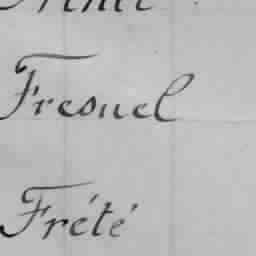 Fresnel
Frété